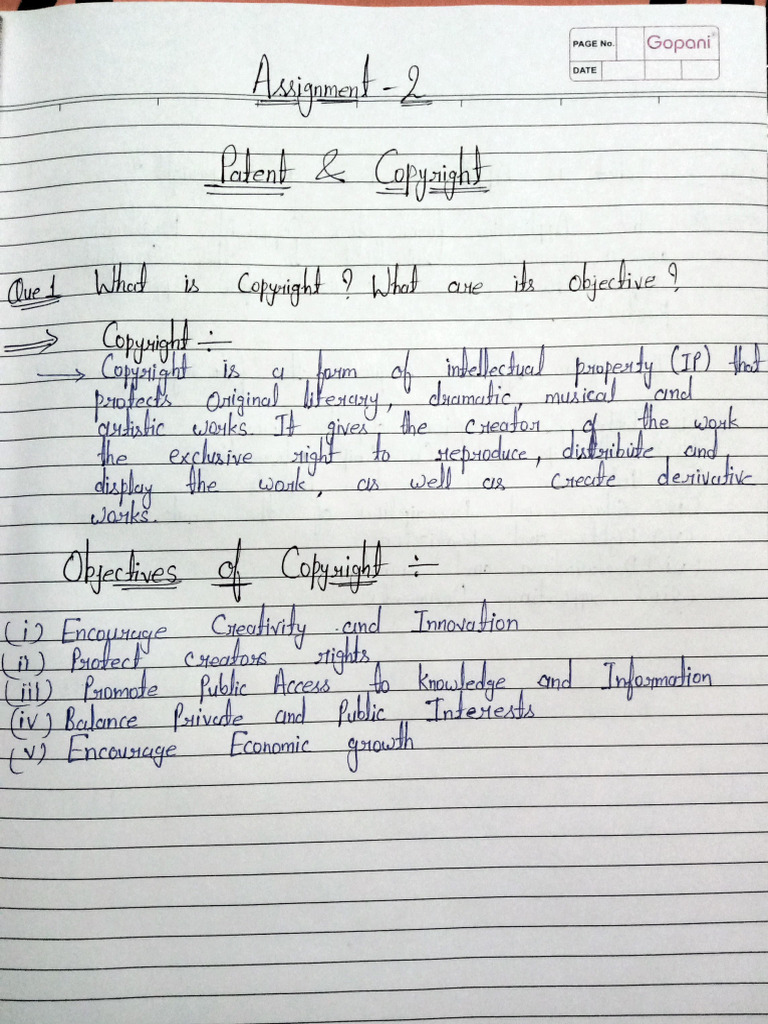 PAGE No.
Gopani
DATE
Assignment - 2
Patent & Copyright
Que 1 What is Copyright? What are its objective?
⇒ Copyright ÷
→ Copyright is a form of intellectual property (IP) that
protects original literary, dramatic, musical and
artistic works. It gives the creator of the work
the exclusive right to reproduce, distribute, and
display the work, as well as create derivative
works.
Objectives of Copyright ÷
(i) Encourage Creativity and Innovation
(ii) Protect creators rights
(iii) Promote Public Access to Knowledge and Information
(iv) Balance Private and Public Interests
(v) Encourage Economic growth